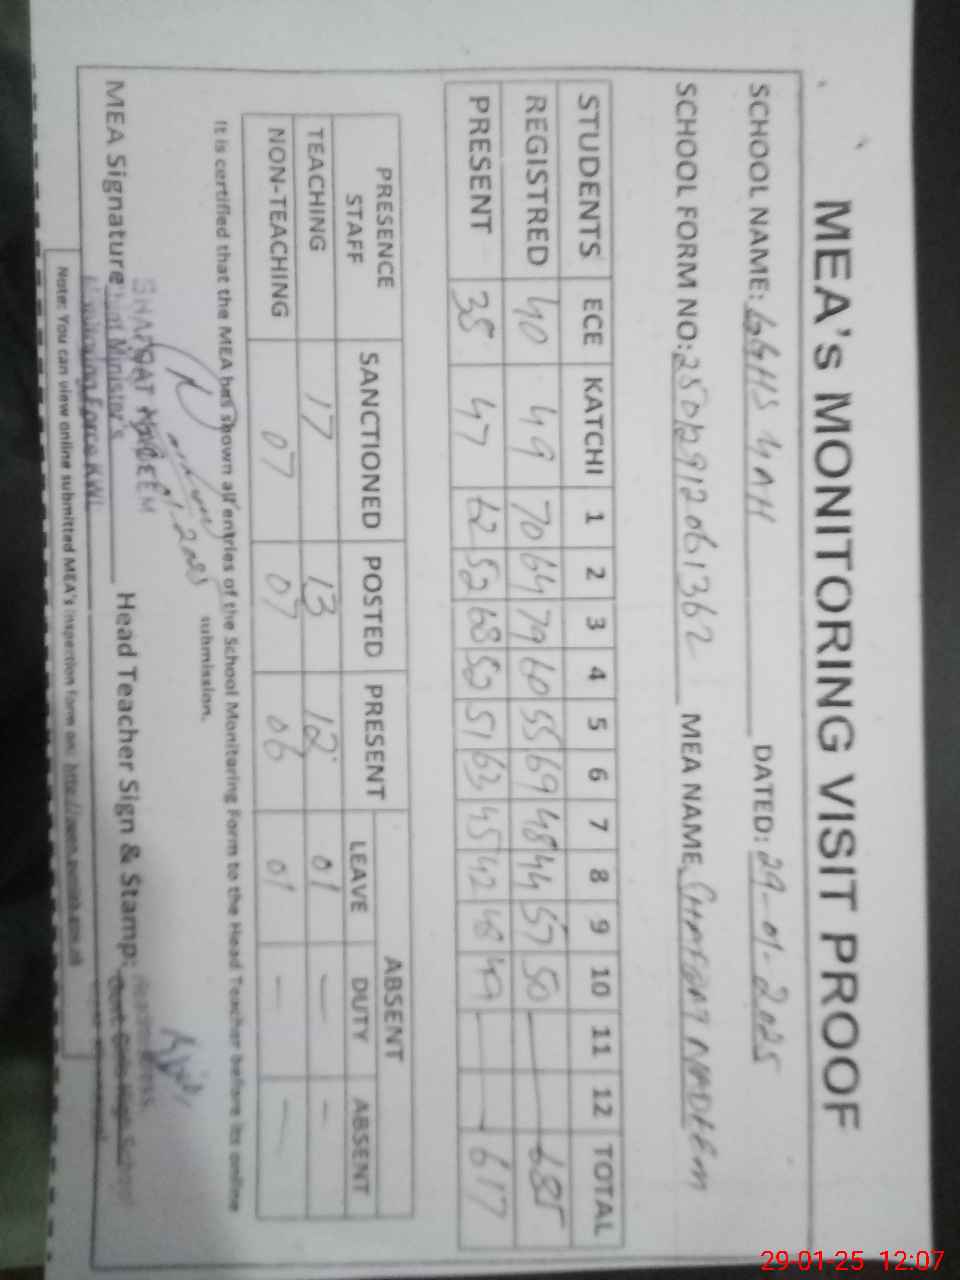 MEA's MONITORING VISIT PROOF
SCHOOL NAME: GGHS 4AH DATED: 29-01-2025
SCHOOL FORM NO: MEA NAME: SHAFQAT NADEEM
STUDENTS ECE KATCHI 1 2 3 4 5 6 7 8 9 10 11 12 TOTAL
REGISTRED 40 49 70 64 79 60 55 69 48 44 57 50 — 685
PRESENT 38 47 62 52 68 52 51 63 45 42 48 49 — 617
PRESENCE STAFF SANCTIONED POSTED PRESENT ABSENT
LEAVE DUTY ABSENT
TEACHING 17 13 12 01 — —
NON-TEACHING 07 07 06 01 — —
It is certified that the MEA has shown all entries of the School Monitoring Form to the Head Teacher before its online
submission.
SHAFQAT NADEEM
MEA Signature: Head Teacher Sign & Stamp:
Chief Minister's
Monitoring Force KWL
Note: You can view online submitted MEA's inspection form on:
29-01-25 12:07